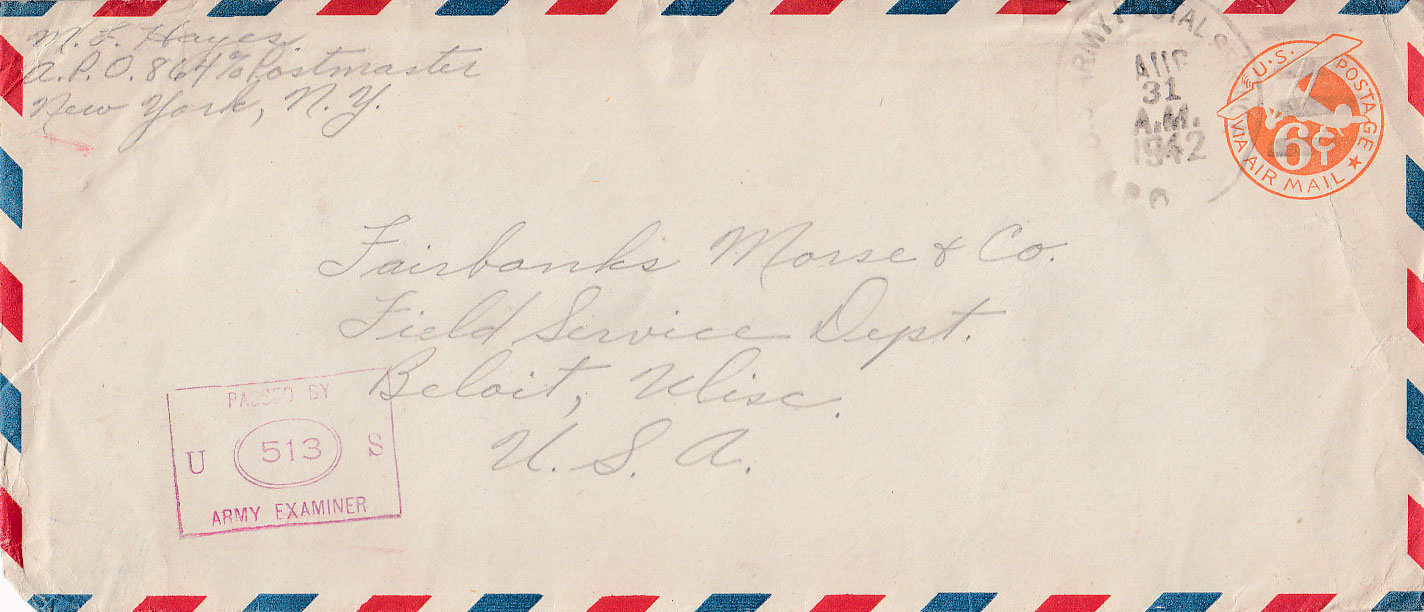 M. F. Hayes.
A.P.O. 864 % Postmaster
New York, N.Y.
ARMY POSTAL S
AUG
31
A.M.
1942
U.S. POSTAGE
6¢
VIA AIR MAIL
Fairbanks Morse & Co.
Field Service Dept.
Beloit, Wisc.
U. S. A.
PASSED BY
U 513 S
ARMY EXAMINER